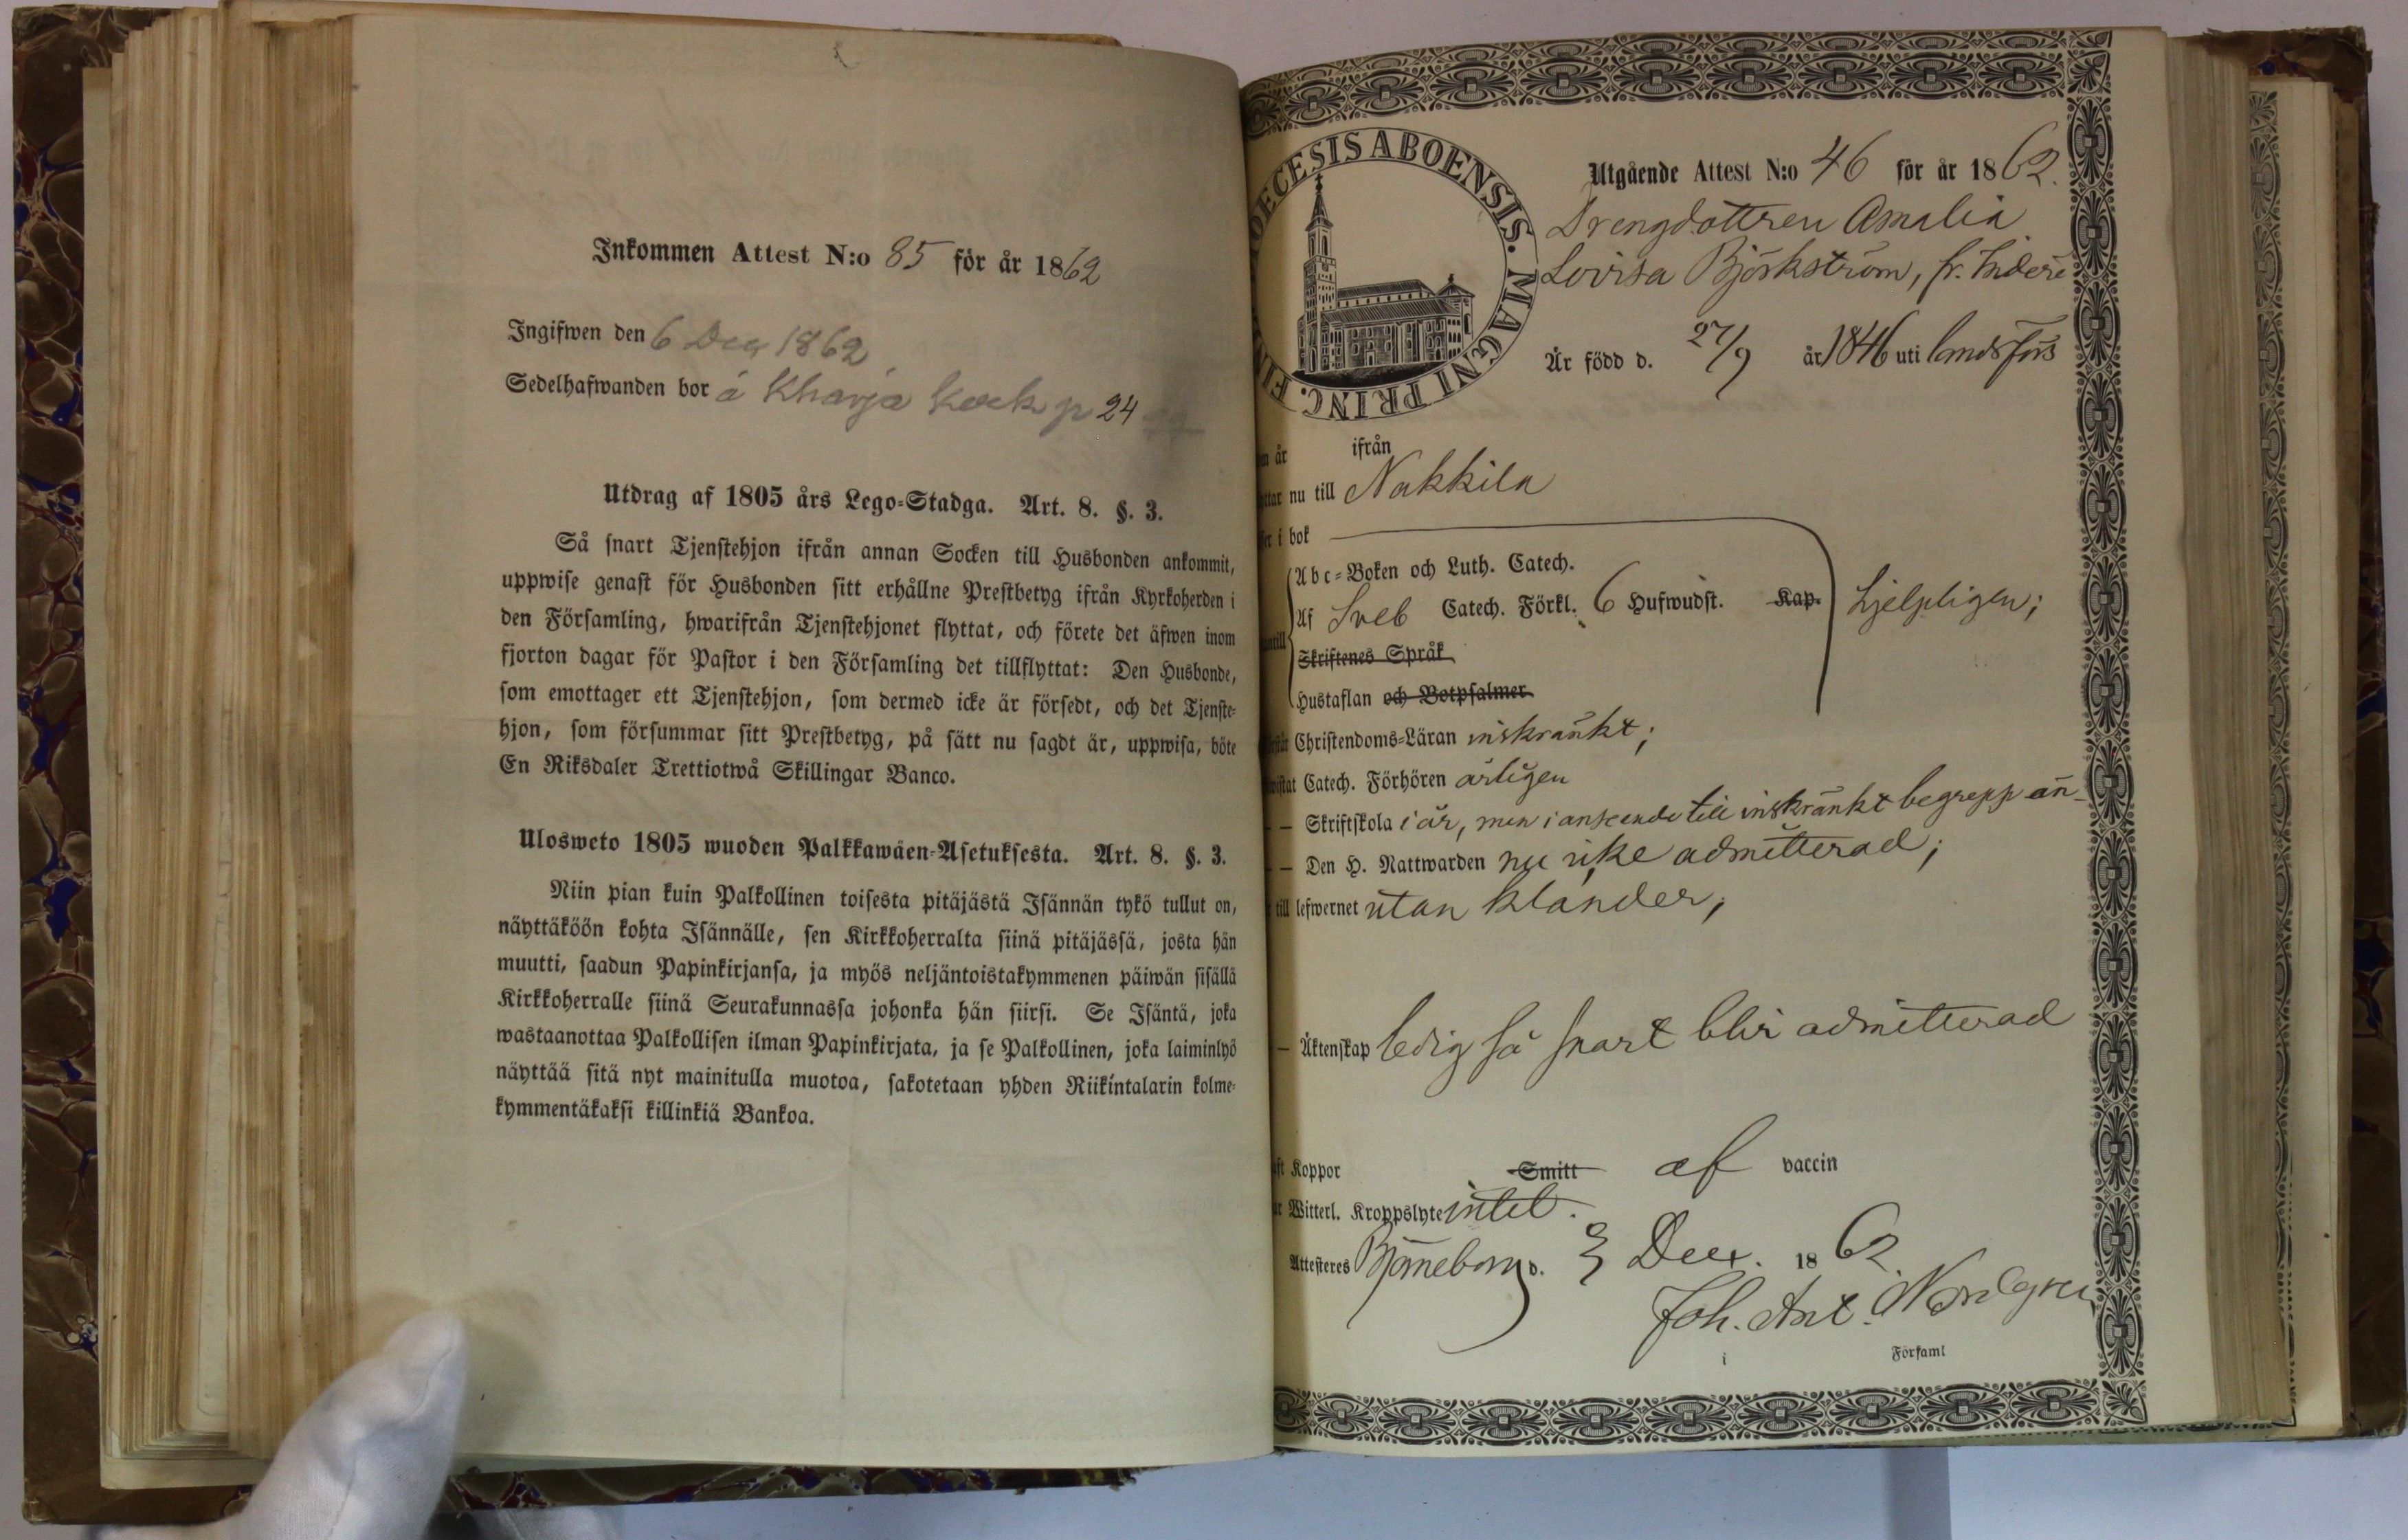 Inkommen Attest N:o 85 för år 1862
Ingifwen den 6 Dec 1862
Sedelhafwanden bor å Kharja Kock p 24
Utdrag af 1805 års Lego-Stadga. Art. 8. §. 3.
Så snart Tjenstehjon ifrån annan Socken till Husbonden ankommit,
uppwise genast för Husbonden sitt erhållne Prestbetyg ifrån Kyrkoherden i
den Församling, hwarifrån Tjenstehjonet flyttat, och förete det äfwen inom
fjorton dagar för Pastor i den Församling det tillflyttat: Den Husbonde,
som emottager ett Tjenstehjon, som dermed icke är försedt, och det Tjenste-
hjon, som försummar sitt Prestbetyg, på sätt nu sagdt är, uppwisa, böte
En Riksdaler Trettiotwå Skillingar Banco.
Ulosweto 1805 wuoden Palkkawäen-Asetuksesta. Art. 8. §. 3.
Niin pian kuin Palkollinen toisesta pitäjästä Isännän tykö tullut on,
näyttäköön kohta Isännälle, sen Kirkkoherralta siinä pitäjässä, josta hän
muutti, saadun Papinkirjansa, ja myös neljäntoistakymmenen päiwän sisällä
Kirkkoherralle siinä Seurakunnassa johonka hän siirsi. Se Isäntä, joka
wastaanottaa Palkollisen ilman Papinkirjata, ja se Palkollinen, joka laiminlyö
näyttää sitä nyt mainitulla muotoa, sakotetaan yhden Riikintalarin kolme-
kymmentäkaksi killinkiä Bankoa.
OECESIS ABOENSIS. MAGNI PRINC. FIN
Utgående Attest N:o 46 för år 1862.
Drengdottren Amalia
Lovisa Björkström, fr.
Är född d. 27/9 år 1846 uti landsförs
år ifrån
nu till Nakkila
i bok
Abc-Boken och Luth. Catech.
Af Sveb Catech. Förkl. 6 Hufwudst. Kap. hjelpligen;
Skriftenes Språk
Hustaflan och Botpsalmer
Christendoms-Läran inskränkt;
Catech. Förhören årligen
— Skriftskola i år, men i anseende till inskränkt begrepp än-
— Den H. Nattwarden nu icke admitterad;
till lefwernet utan klander;
— Äktenskap ledig så snart blir admitterad
Koppor Smitt af vaccin
Witterl. Kroppslyte intet.
Attesteres Björneborg d. 3 Dec. 1862.
Joh. Ant. Nordgren
i Församl